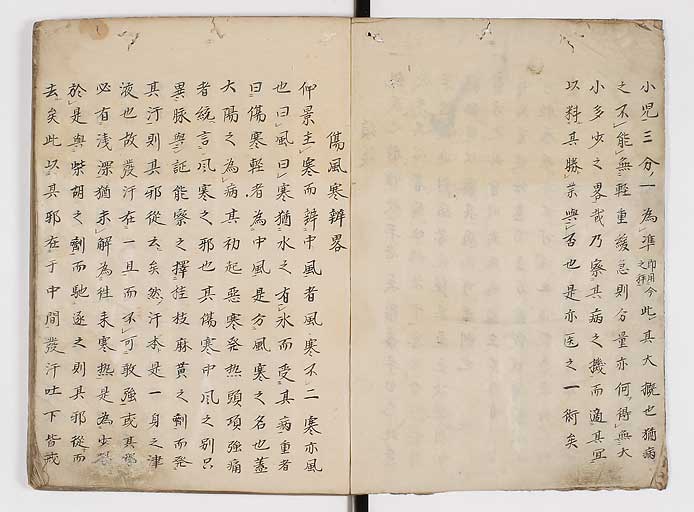 小児三分一為準即用今之秤此其大概也猶病
之不能無軽重緩急則分量亦何得無大
小多少之畧哉乃察其病之機而適其宜
以料其勝薬與否也是亦医之一術矣
傷風寒辨畧
仲景主寒而辨中風者風寒不二寒亦風
也曰風曰寒猶水之有氷而受其病重者
曰傷寒軽者為中風是分風寒之名也蓋
大陽之為病其初起悪寒発熱頭項強痛
者統言風寒之邪也其傷寒中風之別只
異脉與証能察之擇桂枝麻黄之劑而発
其汗則其邪從去矣然汗本是一身之津
液也故發汗在一旦而不可敢強或其
必有浅深猶未解為往来寒熱是為少
於是與柴胡之劑而馳逐之則其邪從而
去矣此以其邪在于中間發汗吐下皆